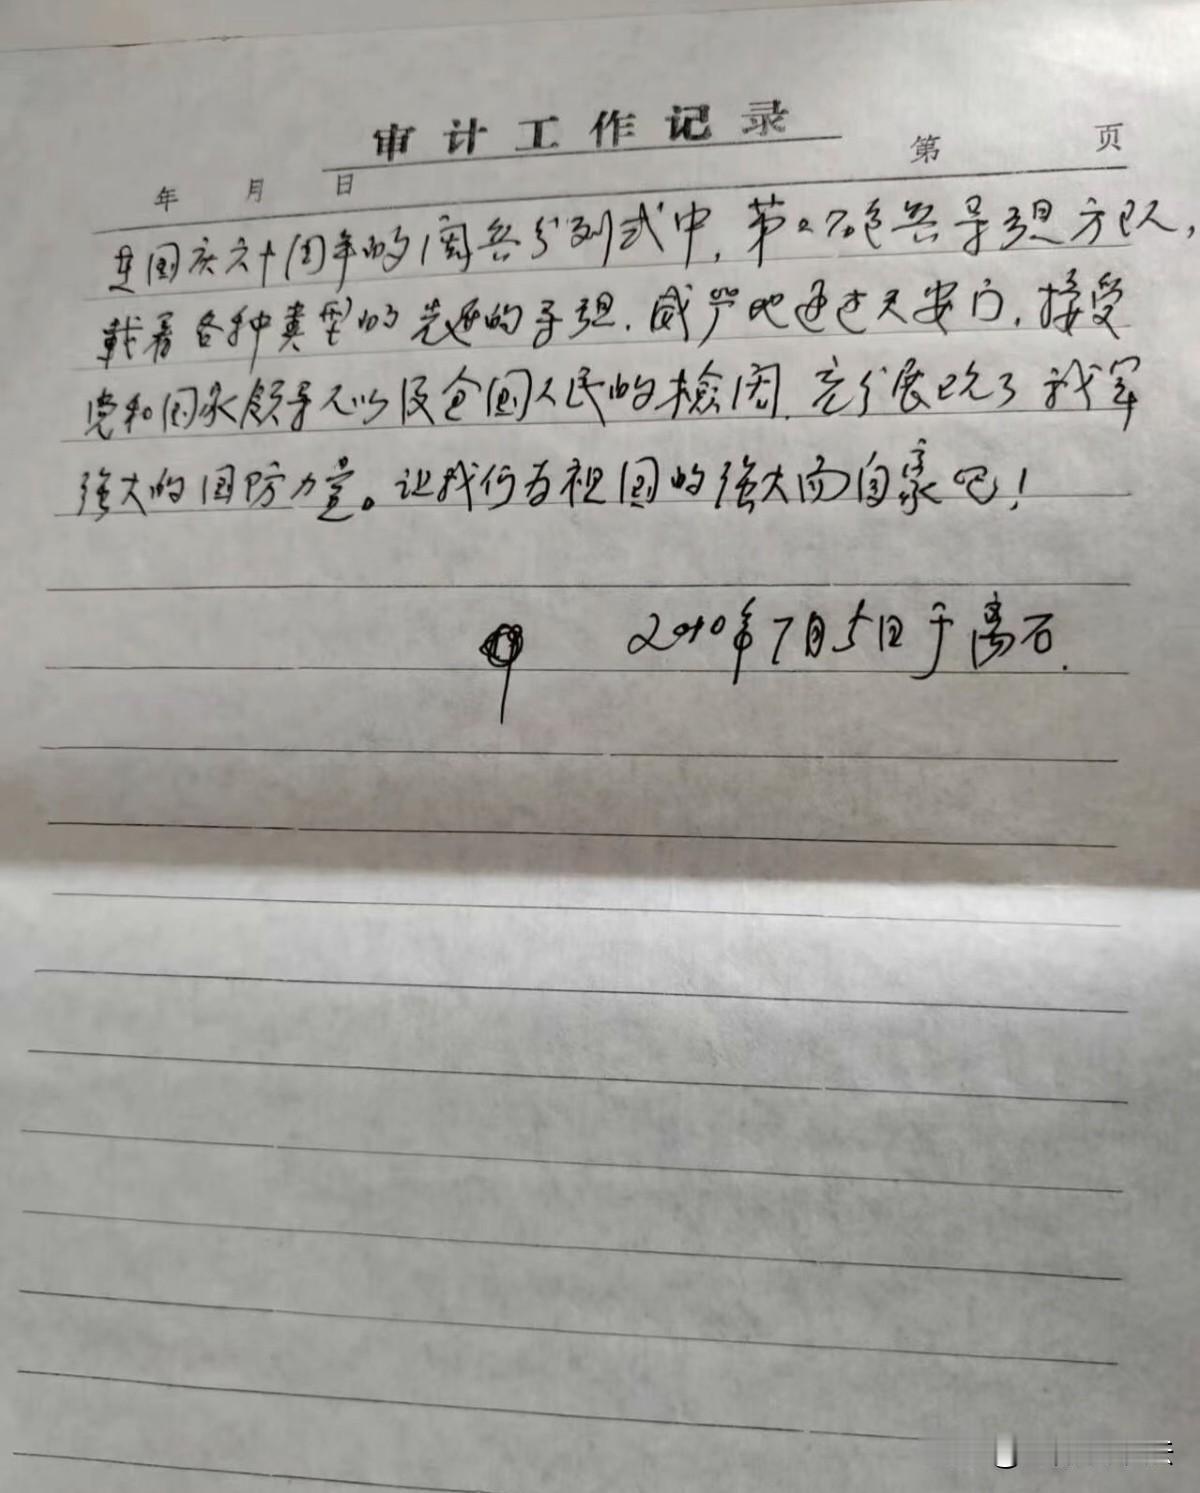 审计工作记录
年 月 日 第 页
在国庆六十周年的阅兵分列式中，第二炮兵导弹方队，
载着各种类型的先进的导弹．威严地通过天安门，接受
党和国家领导人以及全国人民的检阅．充分展现了我军
强大的国防力量。让我们为祖国的强大而自豪吧！
2010年7月5日于离石．